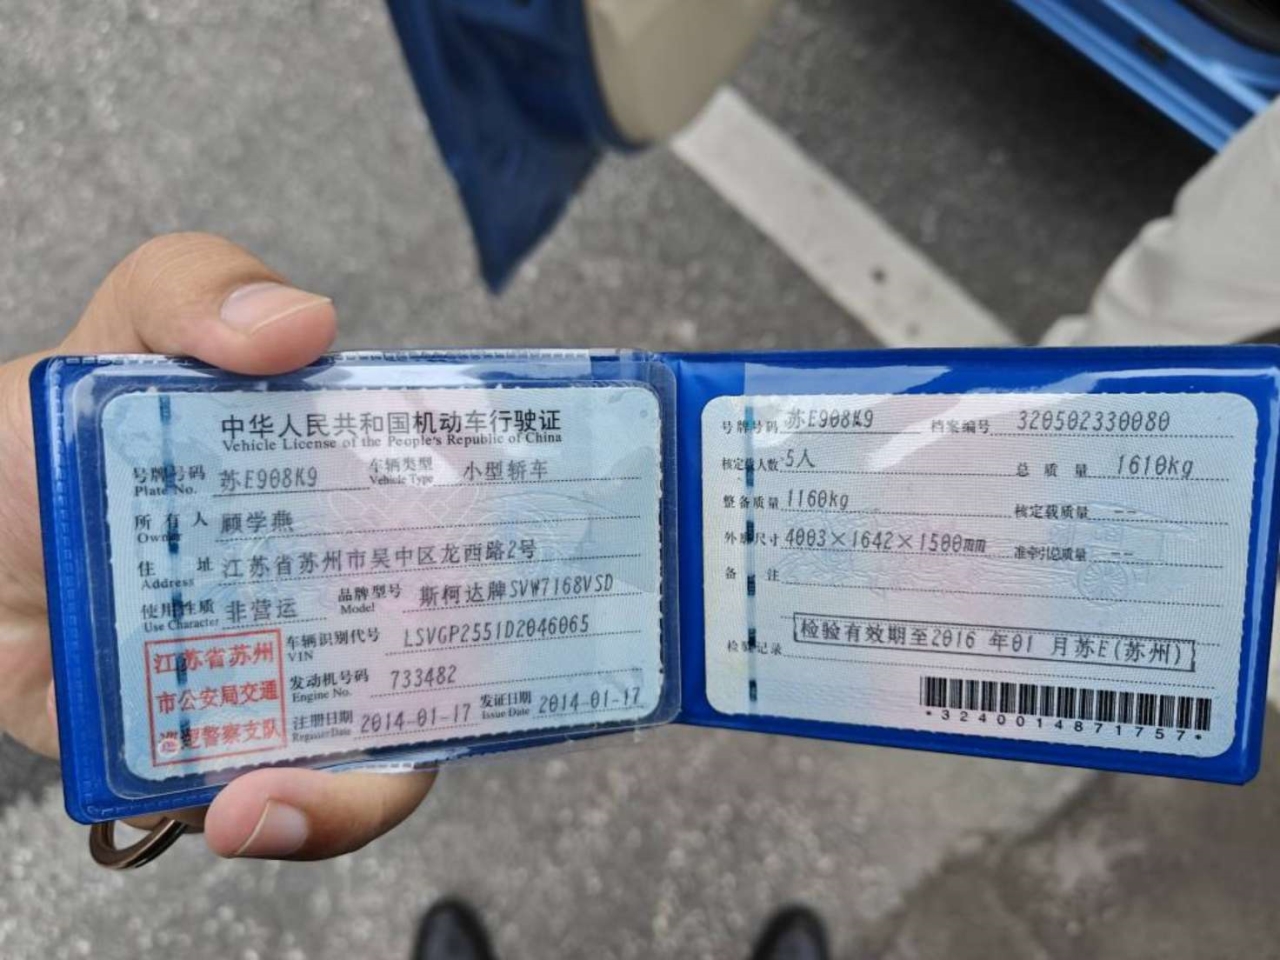 中华人民共和国机动车行驶证
Vehicle License of the People's Republic of China
号牌号码 苏E908K9 车辆类型 小型轿车
Plate No. Vehicle Type
所有人 顾学燕
Owner
住址 江苏省苏州市吴中区龙西路2号
Address
使用性质 非营运 品牌型号 斯柯达牌SVW7168VSD
Use Character Model
江苏省苏州
市公安局交通
巡逻警察支队
车辆识别代号 LSVGP2551D2046065
VIN
发动机号码 733482
Engine No.
注册日期 2014-01-17 发证日期 2014-01-17
Register Date Issue Date
号牌号码 苏E908K9 档案编号 320502330080
核定载人数 5人 总质量 1610kg
整备质量 1160kg 核定载质量 --
外廓尺寸 4003×1642×1500 准牵引总质量 --
备注
检验记录 检验有效期至2016 年01 月苏E(苏州)
*3240014871757*